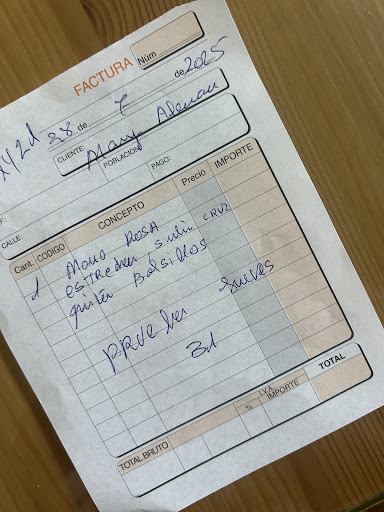 FACTURA
Núm
28 de 7 de 2025
CLIENTE: Mary Aleman
POBLACIÓN:
PAGO:
CALLE:
Cant. CODIGO CONCEPTO Precio IMPORTE
1 MONO ROSA
estrechar subir CRUZ
quitar Bolsillos
Jueves
31
I.V.A.
TOTAL BRUTO % IMPORTE TOTAL